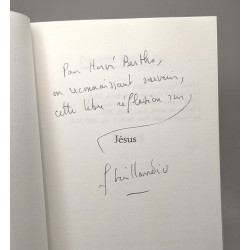 Pour Hervé Bertho,
en reconnaissant souvenir,
cette libre réflexion sur
Jésus